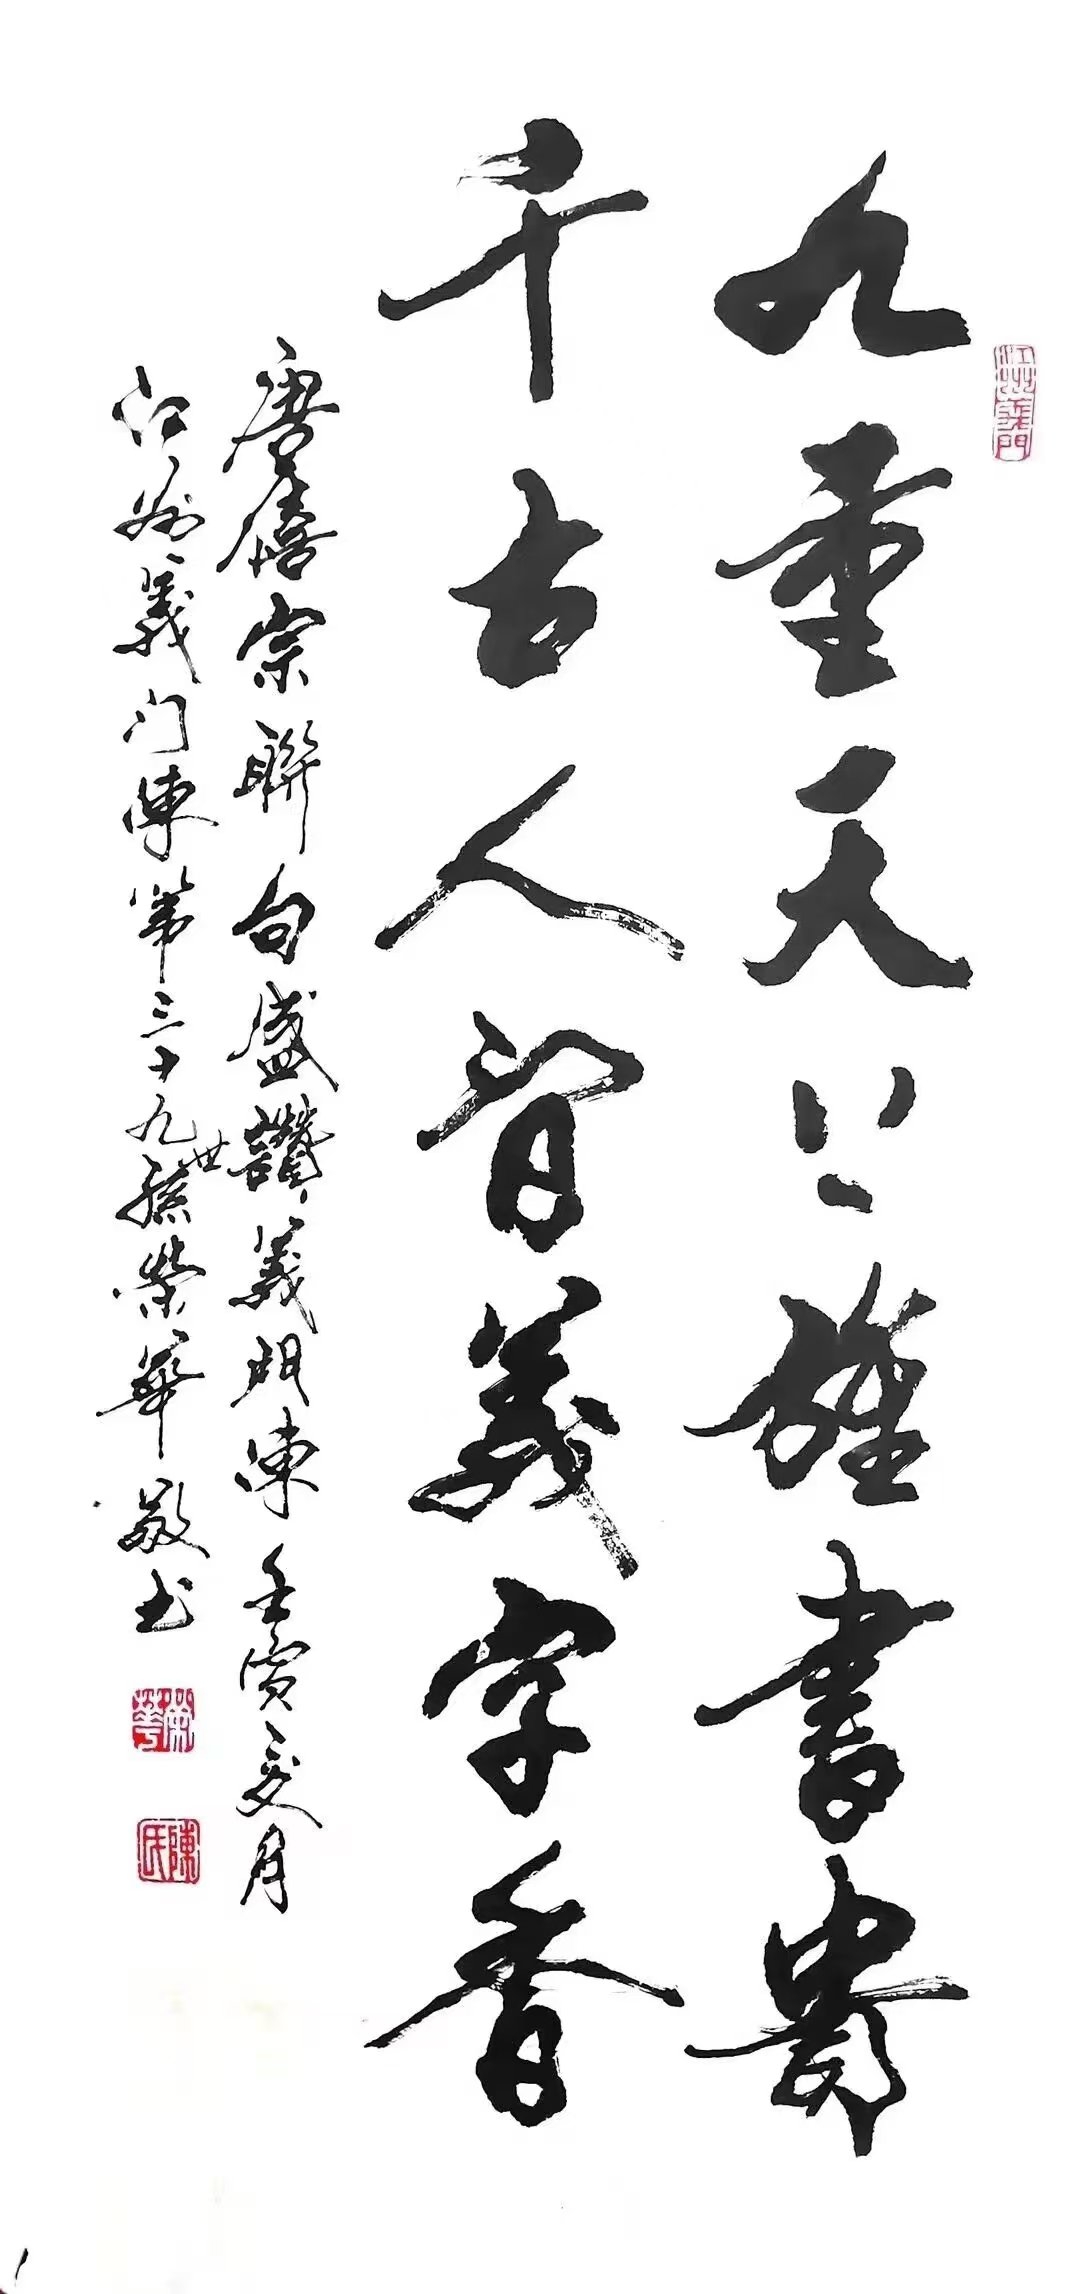 九重天上旌書貴
千古人間義字香
唐僖宗聯句盛讚義門陳 壬寅夏月
江州義門陳第三十九世孫榮華敬書
江州義門
榮華
陳氏